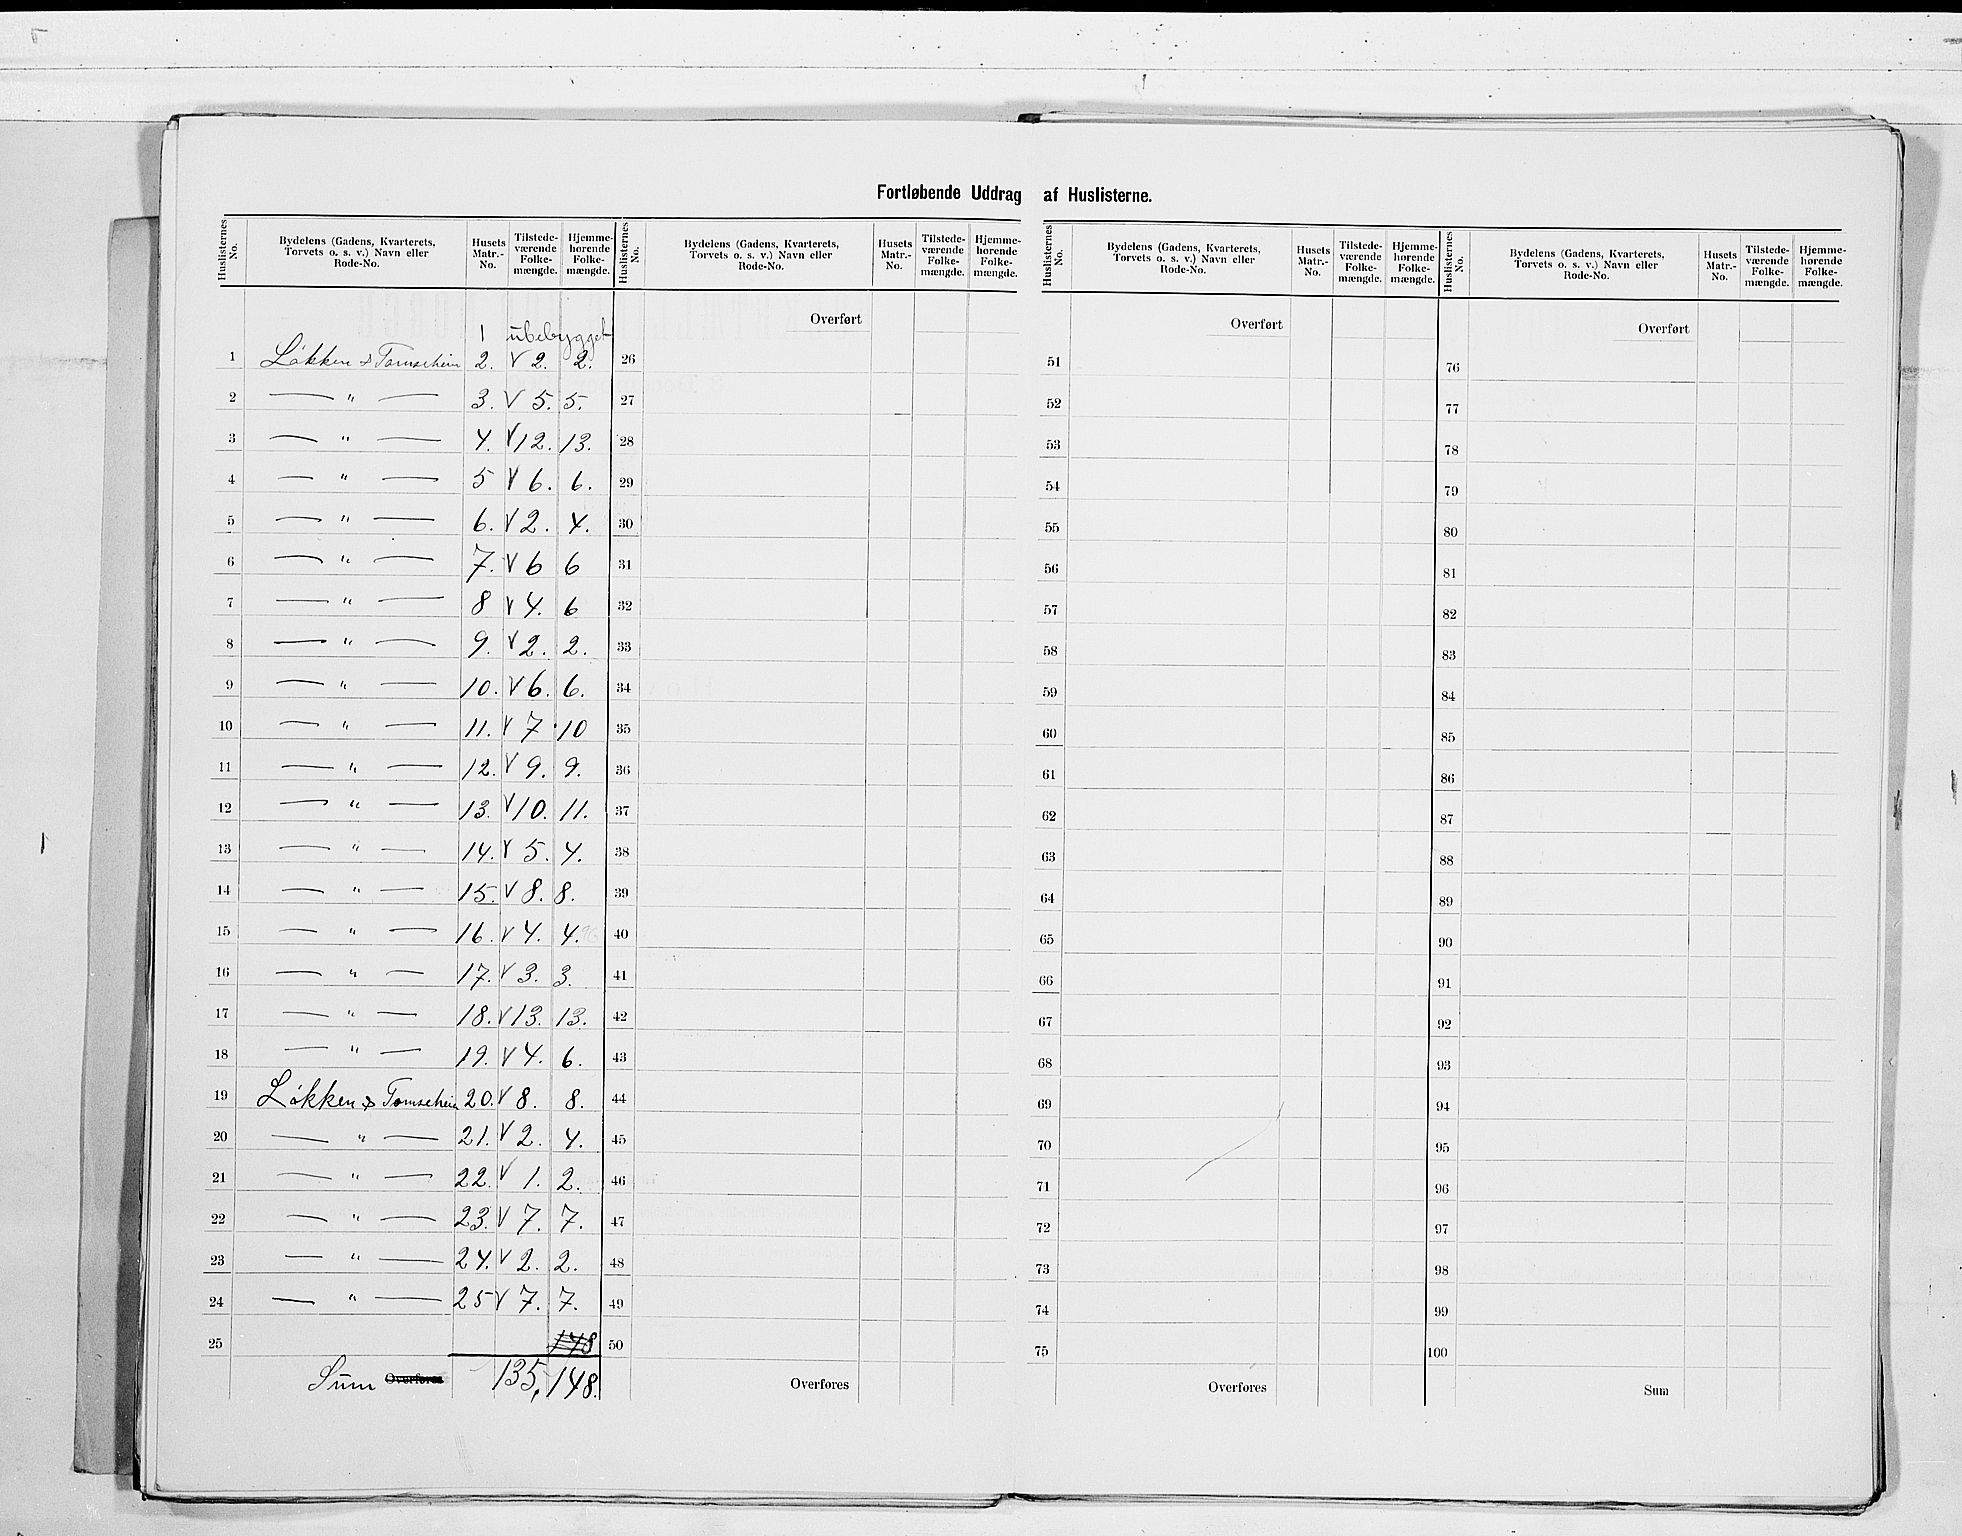 Fortløbende Uddrag af Huslisterne.
Huslisternes No. | Bydelens (Gadens, Kvarterets, Torvets o. s. v.) Navn eller Rode-No. | Husets Matr.-No. | Tilstedeværende Folkemængde. | Hjemmehørende Folkemængde.
1 ubebygget
1 Løkken & 2. V 2. 2.
2 — " — 3. V 5. 5.
3 — " — 4. V 12. 13.
4 — " — 5 V 6. 6.
5 — " — 6. V 2. 4.
6 — " — 7. V 6 6
7 — " — 8 V 4. 6
8 — " — 9. V 2. 2.
9 — " — 10. V 6. 6.
10 — " — 11. V 7 10
11 — " — 12. V 9. 9.
12 — " — 13. V 10. 11.
13 — " — 14. V 5. 4.
14 — " — 15. V 8. 8.
15 — " — 16. V 4. 4.
16 — " — 17. V 3. 3.
17 — " — 18. V 13. 13.
18 — " — 19. V 4. 6.
19 Løkken & 20. V 8. 8.
20 — " — 21. V 2. 4.
21 — " — 22. V 1. 2.
22 — " — 23. V 7. 7.
23 — " — 24. V 2. 2.
24 — " — 25 V 7. 7.
25 148
Sum Overføres 135, 148.
Huslisternes No. | Bydelens (Gadens, Kvarterets, Torvets o. s. v.) Navn eller Rode-No. | Husets Matr.-No. | Tilstedeværende Folkemængde. | Hjemmehørende Folkemængde.
Overført
26
27
28
29
30
31
32
33
34
35
36
37
38
39
40
41
42
43
44
45
46
47
48
49
50
Overføres
Huslisternes No. | Bydelens (Gadens, Kvarterets, Torvets o. s. v.) Navn eller Rode-No. | Husets Matr.-No. | Tilstedeværende Folkemængde. | Hjemmehørende Folkemængde.
Overført
51
52
53
54
55
56
57
58
59
60
61
62
63
64
65
66
67
68
69
70
71
72
73
74
75
Overføres
Huslisternes No. | Bydelens (Gadens, Kvarterets, Torvets o. s. v.) Navn eller Rode-No. | Husets Matr.-No. | Tilstedeværende Folkemængde. | Hjemmehørende Folkemængde.
Overført
76
77
78
79
80
81
82
83
84
85
86
87
88
89
90
91
92
93
94
95
96
97
98
99
100
Sum